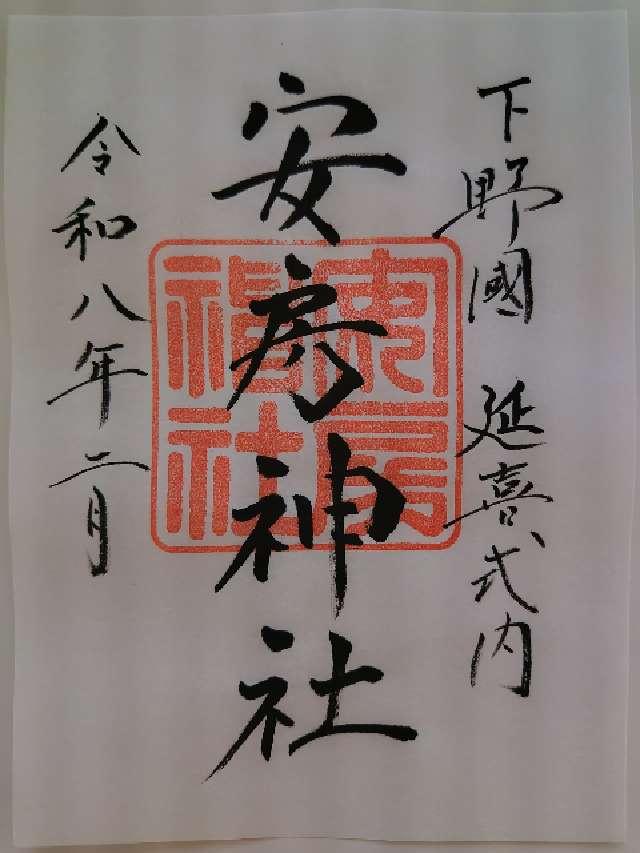 下野國 延喜式内
安房神社
安房神社
令和八年二月